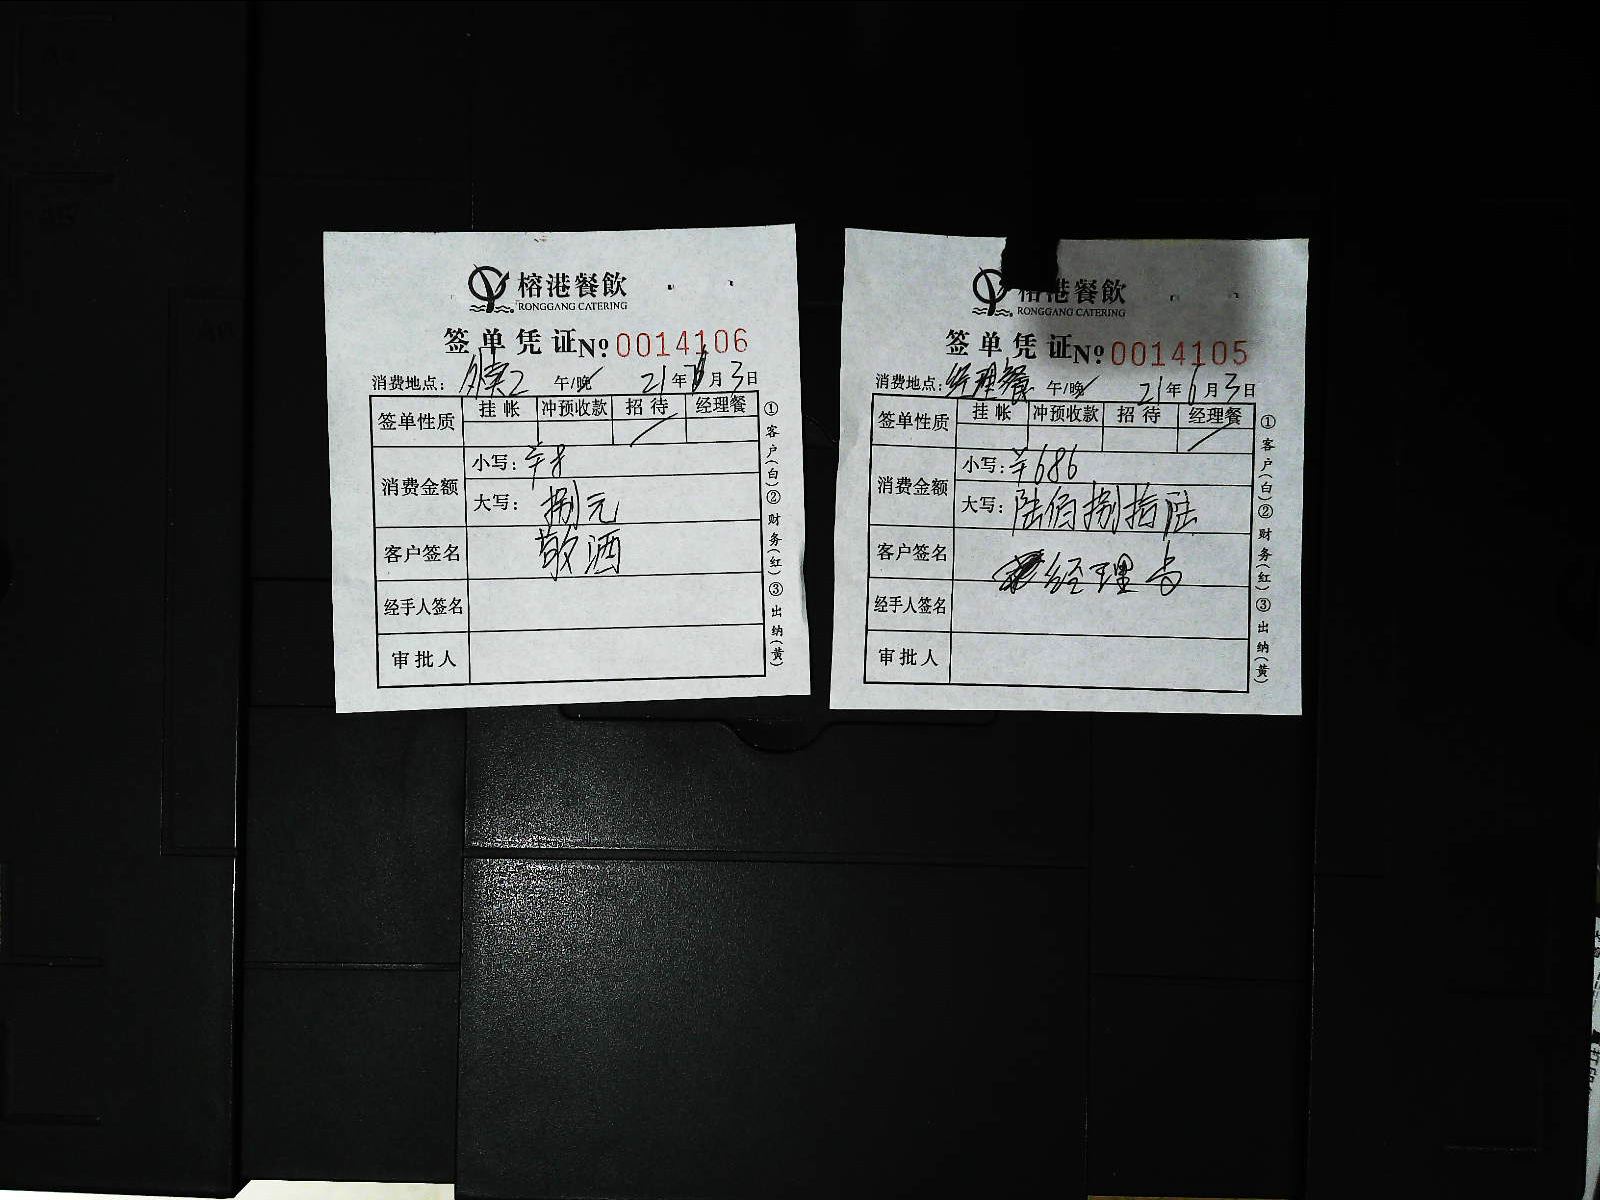 榕港餐飲
RONGGANG CATERING
签单凭证 №0014106
消费地点: 午/晚 21年 月3日
签单性质 挂帐 冲预收款 招待 经理餐
消费金额 小写: ¥8
大写: 捌元
客户签名 敬酒
经手人签名
审批人
①客户(白)②财务(红)③出纳(黄)
榕港餐飲
RONGGANG CATERING
签单凭证 №0014105
消费地点: 经理餐 午/晚 21年6月3日
签单性质 挂帐 冲预收款 招待 经理餐
消费金额 小写: ¥686
大写: 陆佰捌拾陆
客户签名 经理
经手人签名
审批人
①客户(白)②财务(红)③出纳(黄)